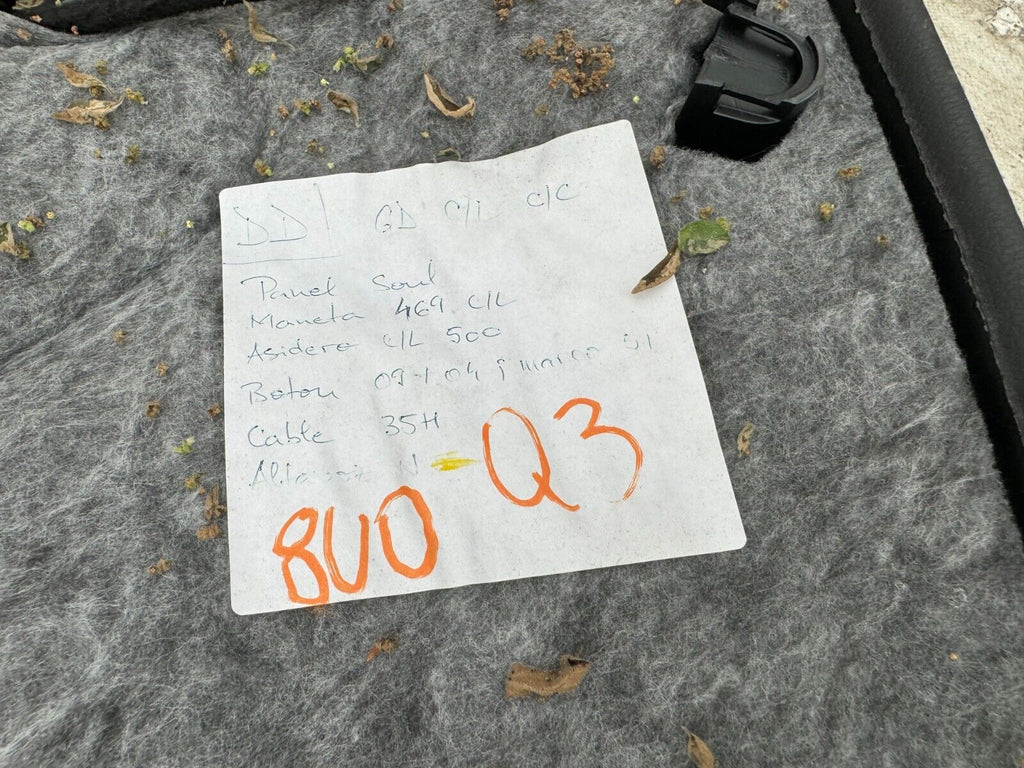 DD GD C/L C/C
Panel Soul
Maneta 469 C/L
Asidero C/L 500
Boton 09 04 marco
Cable 35H
N
8U0 - Q3